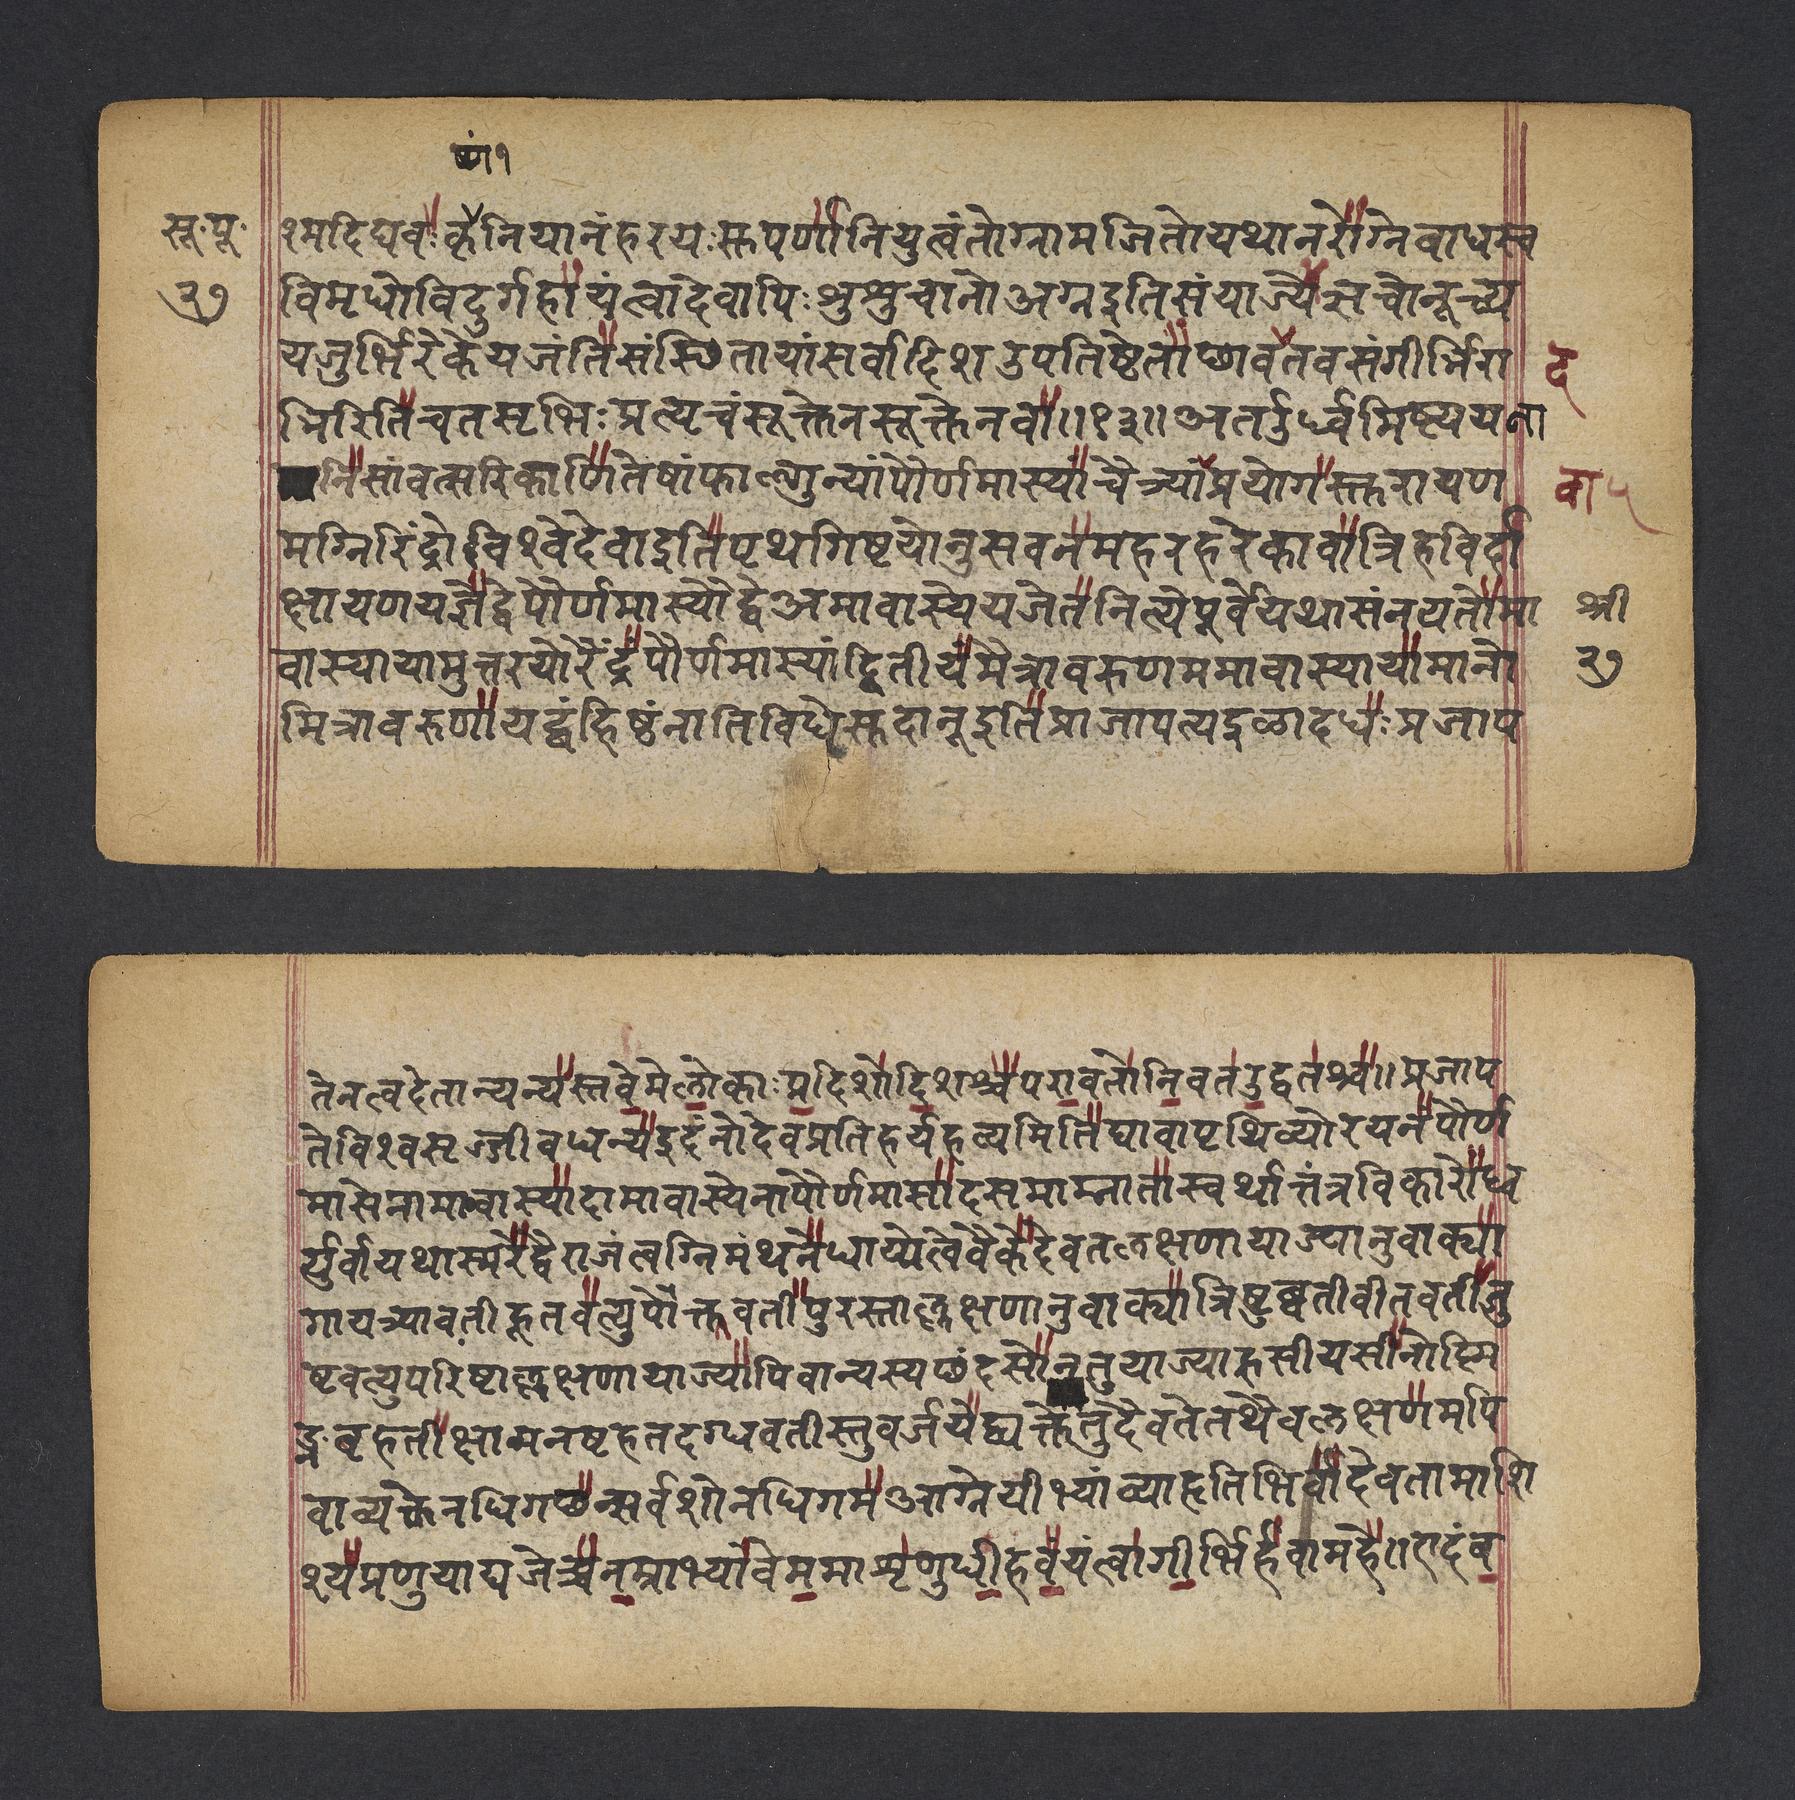 ष्णं१
सू.पू.
३७
श्मदिघवः कृनियानंहरयःसुपर्णानियुत्वंतोग्नामजितोयथानरोग्नेबाधस्व
विमृधोविदुर्गहायंत्वादेवापिःशुशुचानोअग्नइतिसंयाज्येऋचोनूच्य
यजुर्भिरेकेयजंतिसंस्थितायांसर्वादिशउपतिष्ठेताछावतवसंगीर्भिरा
भिरितिचतसृभिःप्रत्यृचंसूक्तेनसूक्तेनवा॥१३॥अतऊर्ध्वमिष्ट्ययना
निसांवत्सरिकाणितेषांफाल्गुन्यांपौर्णमास्यांचैत्र्यांप्रयोगस्तुरायण
मग्निरिंद्रोविश्वेदेवाइतिपृथगिष्टयोनुसवनमहरहरेकावात्रिहविर्दा
क्षायणयज्ञेद्वेपौर्णमास्यौद्वेअमावास्येयजेतनित्येपूर्वेयथासंनयतोमा
वास्यायामुत्तरयोरैंद्रंपौर्णमास्यांद्वितीयंमैत्रावरुणममावास्यायामानो
मित्रावरुणायद्बंहिष्ठंनातिविधेसुदानूइतिप्राजापत्यइळादधःप्रजाप
द
वा५
श्री
३७
तेनत्वदेतान्यन्यस्तवेमेलोकाःप्रदिशोदिशश्चपरावतोनिवतउद्वतश्च॥प्रजाप
तेविश्वसृज्जीवधन्यइदंनोदेवप्रतिहर्यहव्यमितिद्यावापृथिव्योरयनंपौर्ण
मासेनामावास्यादामावास्येनापौर्णमासादसमाम्नातास्वर्थात्तंत्रविकारोध्व
र्युर्वायथास्मरेद्वैराजंत्वग्निमंथनेधाय्येत्वेवैकेदेवतलक्षणायाज्यानुवाक्या
गायत्र्यावतीहूतवत्युपोक्तवतीपुरस्ताल्लक्षणानुवाक्यात्रिष्टुब्वतीवीतवतीजु
ष्टवत्युपरिष्टाल्लक्षणायाज्यापिवान्यस्यछंदसोनतुयाज्याह्रसीयसीनोष्मि
ङ्नबृहतीक्षामनष्टहतदग्धवतीस्तुवर्जयेद्व्यक्तेतुदैवतेतथैवलक्षणमपि
वाव्यक्तेनधिगछन्सर्वशोनधिगमआग्नेयीभ्यांव्याहृतिभिर्वादेवतामाशि
श्ययंप्रणुयाद्यजेच्चैनम्नाभ्यांवेममाशृणुधीहवंयंत्वागीर्भिर्हवामहे॥एदंब